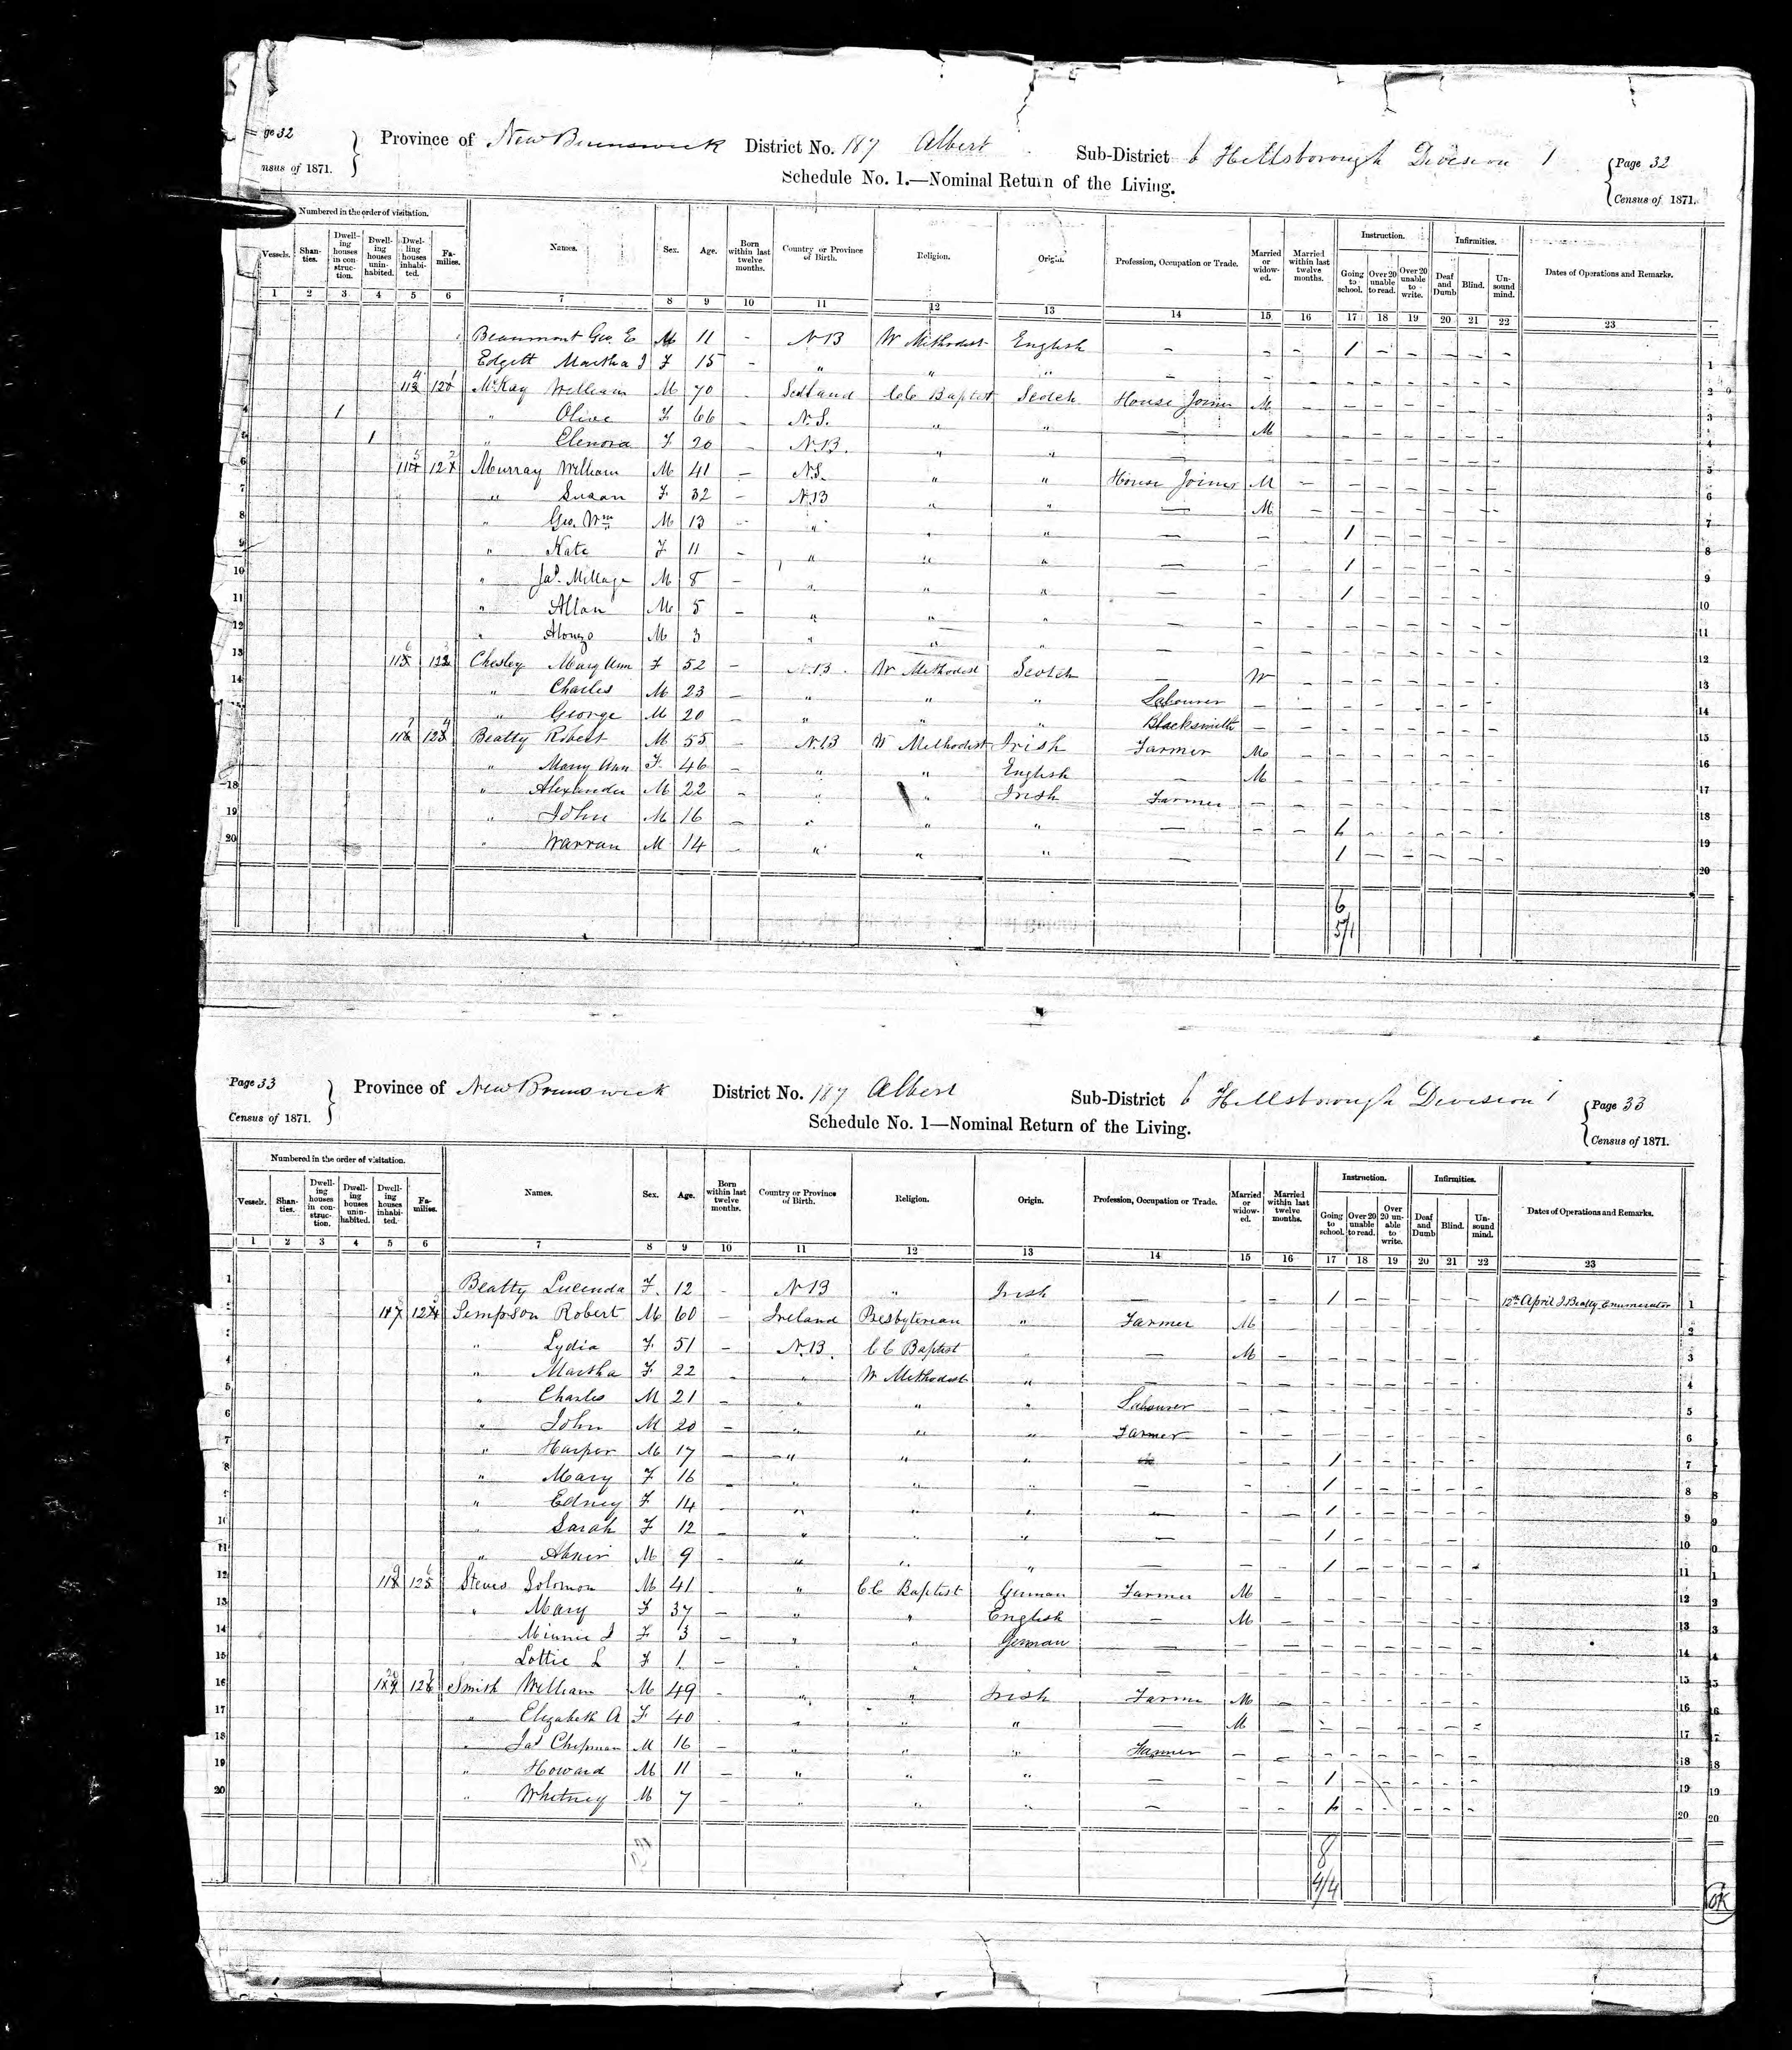 Page 32
Census of 1871.
Province of New Brunswick District No. 187 Albert Sub-District b Hillsborough Division 1
Page 32
Census of 1871.
Schedule No. 1.—Nominal Return of the Living.
Numbered in the order of visitation.
Vessels. Shanties. Dwelling houses in construction. Dwelling houses uninhabited. Dwelling houses inhabited. Families. Names. Sex. Age. Born within last twelve months. Country or Province of Birth. Religion. Origin. Profession, Occupation or Trade. Married or widowed. Married within last twelve months. Instruction. Going to school. Over 20 unable to read. Over 20 unable to write. Infirmities. Deaf and Dumb Blind. Unsound mind. Dates of Operations and Remarks.
1 2 3 4 5 6 7 8 9 10 11 12 13 14 15 16 17 18 19 20 21 22 23
Beaumont Geo E M 11 - N B W Methodist English - - - 1 - - - - - 1
Edgett Martha J F 15 - " " " - - - - - - - - - 2
McKay William M 70 - Scotland C C Baptist Scotch House Joiner M - - - - - - - 3
1 " Olive F 66 - N.S. " " - M - - - - - - - 4
1 " Elenora F 20 - N.B. " " - - - - - - - - - 5
Murray William M 41 - N.S. " " House Joiner M - - - - - - - 6
" Susan F 32 - N.B " " - M - - - - - - - 7
" Geo. Wm M 13 - " " " - - - 1 - - - - - 8
" Kate F 11 - " " " - - - 1 - - - - - 9
" Jas. Millage M 8 - " " " - - - 1 - - - - - 10
" Allan M 5 - " " " - - - - - - - - - 11
" Alonzo M 3 " " " - - - - - - - - - 12
Chesley Mary Ann F 52 - N.B. W Methodist Scotch - W - - - - - - - 13
" Charles M 23 - " " " Labourer - - - - - - - - 14
" George M 20 - " " " Blacksmith - - - - - - - - 15
Beatty Robert M 55 - N.B W Methodist Irish Farmer M - - - - - - - 16
" Mary Ann F. 46 - " " English - M - - - - - - - 17
" Alexander M 22 - " " Irish Farmer - - - - - - - - 18
" John M 16 - " " " - - - 1 - - - - - 19
" Warran M 14 - " " " - - - 1 - - - - - 20
6
5/1
Page 33
Census of 1871.
Province of New Brunswick District No. 187 Albert Sub-District b Hillsborough Division 1
Page 33
Census of 1871.
Schedule No. 1—Nominal Return of the Living.
Numbered in the order of visitation.
Vessels. Shanties. Dwelling houses in construction. Dwelling houses uninhabited. Dwelling houses inhabited. Families. Names. Sex. Age. Born within last twelve months. Country or Province of Birth. Religion. Origin. Profession, Occupation or Trade. Married or widowed. Married within last twelve months. Instruction. Going to school. Over 20 unable to read. Over 20 unable to write. Infirmities. Deaf and Dumb Blind. Unsound mind. Dates of Operations and Remarks.
1 2 3 4 5 6 7 8 9 10 11 12 13 14 15 16 17 18 19 20 21 22 23
1 Beatty Lucinda F. 12 - N B " Irish - - - 1 - - - - - 12th April J Beatty Enumerator 1
Simpson Robert M 60 - Ireland Presbyterian " Farmer M - - - - - - - 2
" Lydia F. 51 - N.B. C C Baptist " - M - - - - - - - 3
4 " Martha F. 22 - " W Methodist " - - - - - - - - - 4
5 " Charles M 21 - " " " Labourer - - - - - - - - 5
6 " John M 20 - " " " Farmer - - - - - - - - 6
7 " Harper M 17 - " " " - - 1 - - - - - 7
8 " Mary F 16 - " " " - - - 1 - - - - - 8
" Edney F 14 - " " " - - - 1 - - - - - 9
10 " Sarah F 12 - " " " - - - 1 - - - - - 10
11 " Abner M 9 - " " " - - - 1 - - - - - 11
12 Steves Solomon M 41 - " C C Baptist German Farmer M - - - - - - - 12
13 " Mary F 37 - " " English - M - - - - - - - 13
14 " Minnie J F 3 - " " German - - - - - - - - - 14
15 " Lottie L F 1 - " " " - - - - - - - - - 15
16 Smith William M 49 - " " Irish Farmer M - - - - - - - 16
17 " Elizabeth A F. 40 - " " " - M - - - - - - - 17
18 " Jas Chipman M 16 - " " " Farmer - - - - - - - - 18
19 " Howard M 11 - " " " - - - 1 - - - - - 19
20 " Whitney M 7 - " " " - - - 1 - - - - - 20
8
4/4
OK